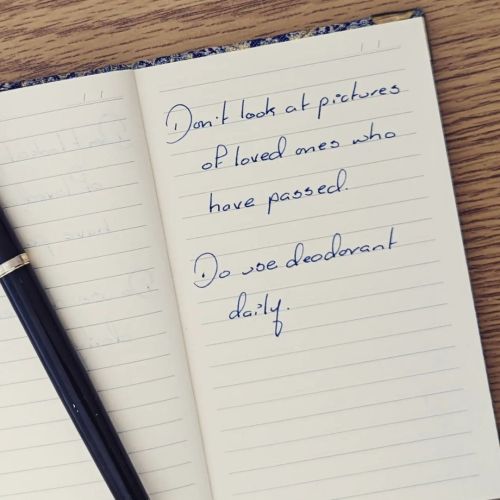 Don't look at pictures
of loved ones who
have passed.
Do use deodorant
daily.